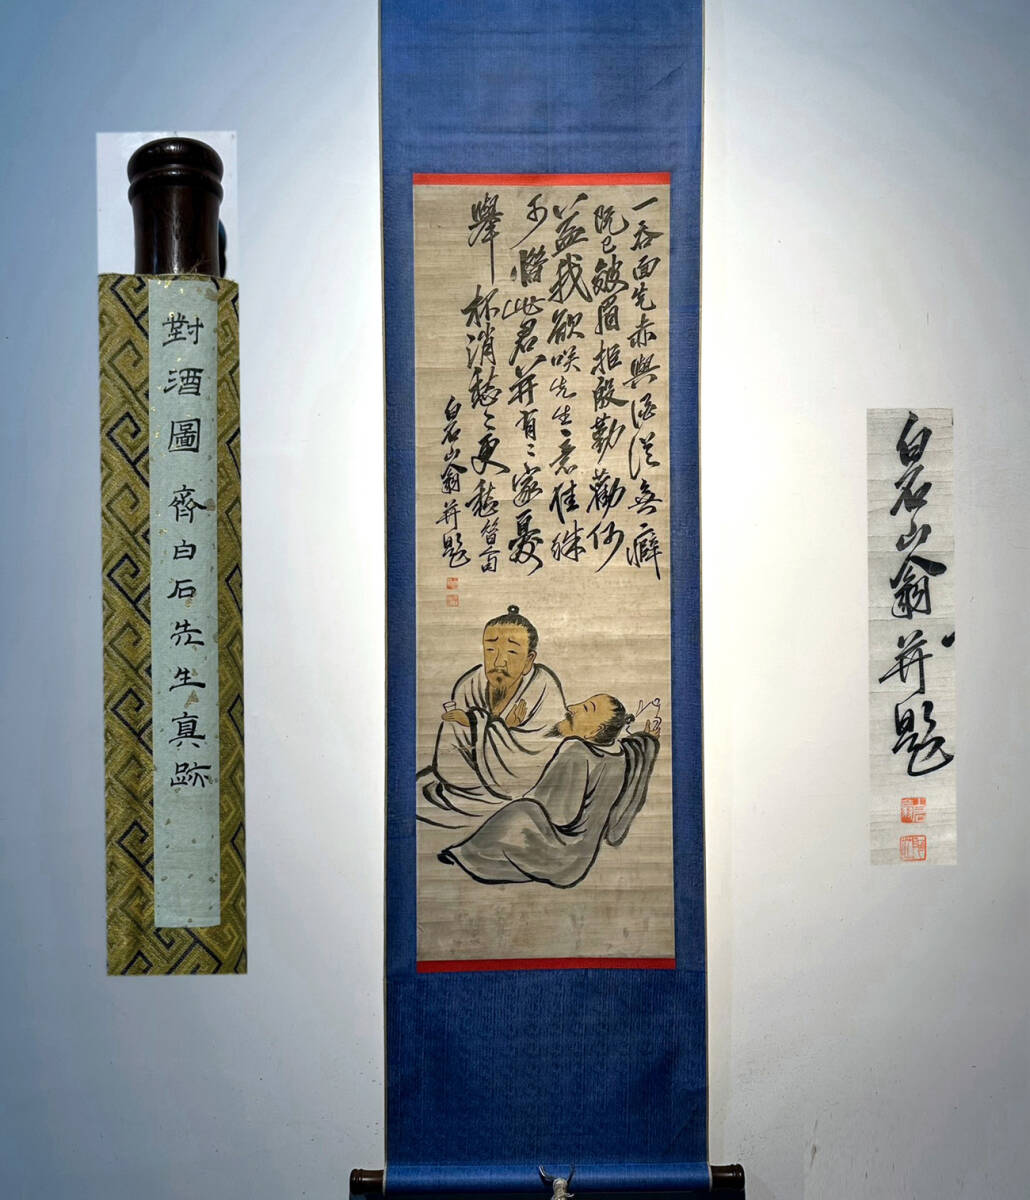 對酒圖 齊白石先生真跡
一吞面先赤與酒從無癖
既已皴眉拒殷勤勸何
益我欲咲先生〻意佳殊
此君并有〻家憂
舉杯消愁〻更愁
白石山翁并題
白石山翁并題